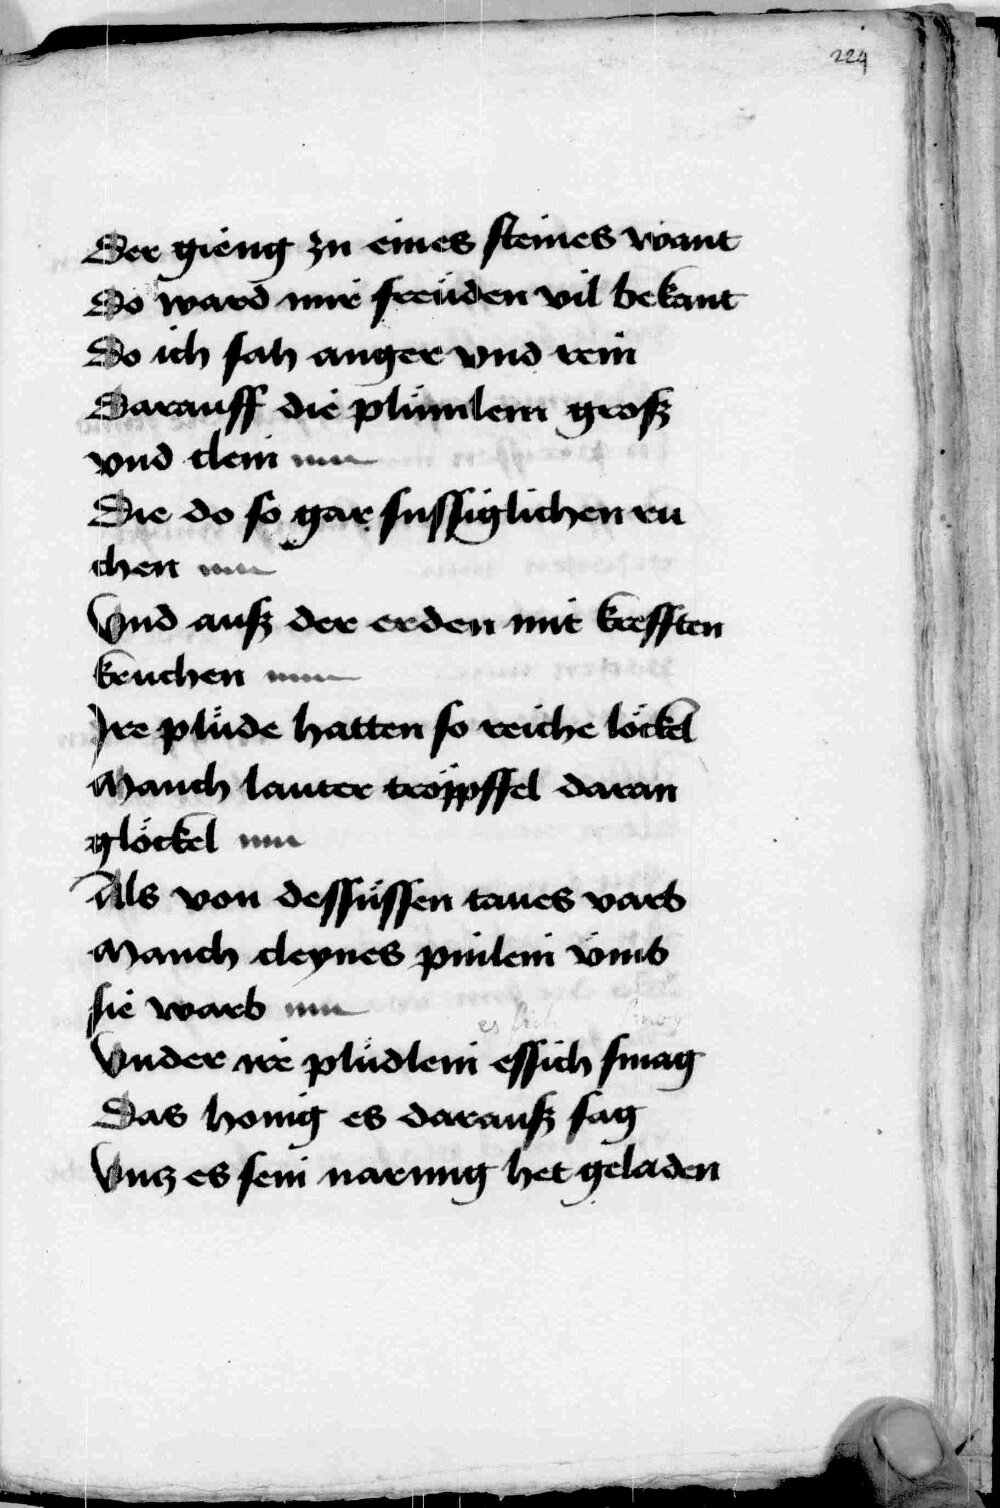 224
Der gieng zu eines steines want
Do ward mir freüden vil bekant
Do ich sah anger vnd rein
Darauff die plümlein groß
vnd clein
Die do so gar sussiglichen ru
chen
Vnd auß der erden mit krefften
kruchen
Ire plüde hatten so reiche löckel
Manch lauter tröpffel daran
glöckel
Als von dessüssen taues varb
Manch cleynes pinlein vmb
sie warb
es sich smag
Vnder ire plüdlein essich smag
Das honig es darauß sag
Vnz es sein narung het geladen